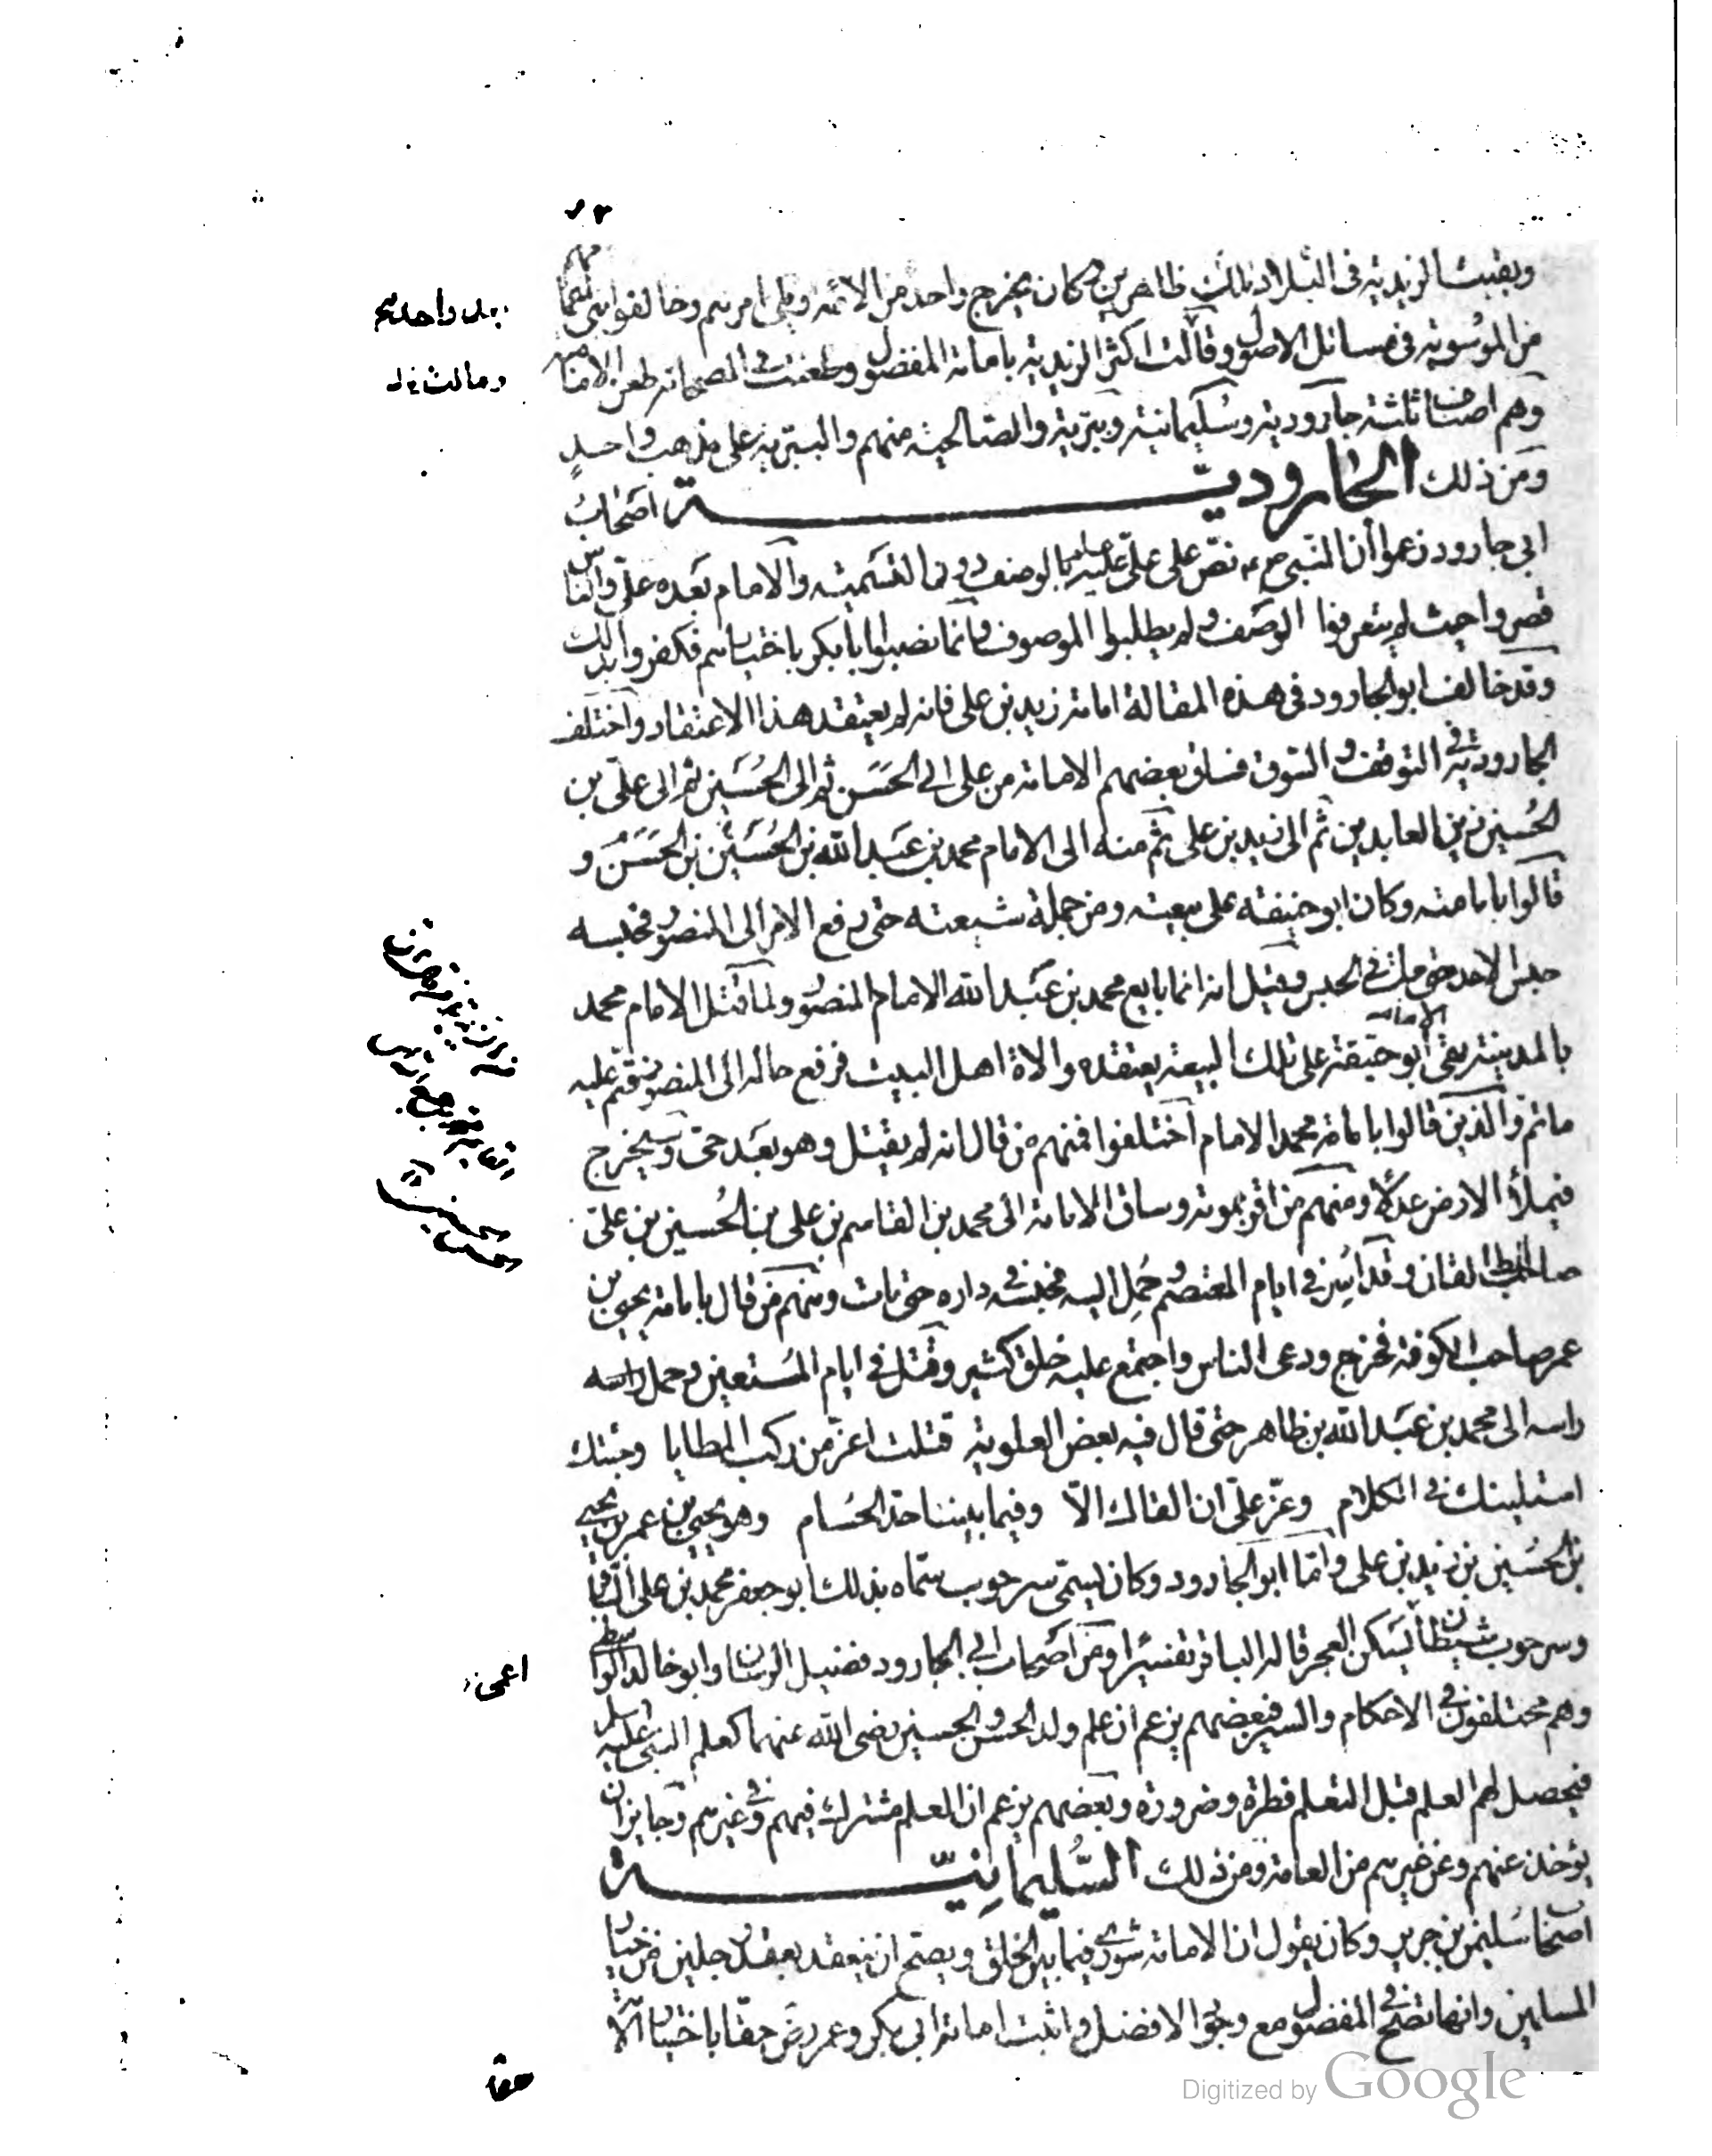 وبقيت الزيدية في البلاد تلك ظاهرين وكان يخرج واحد من الائمة ويلي امرهم وخالفوا بني اعمامهم
من الموسوية في مسائل الاصول وقالت اكثر الزيدية بامامة المفضول وطعنت في الصحابة طعن الامامية
وهم اصناف ثلثة جارودية وسليمانية وبترية والصالحية منهم والبترية على مذهب واحد
ومن ذلك الجارودية اصحاب
ابي جارود زعموا أن النبي صعم نص على علي عليه السلام بالوصف دون التسمية والامام بعده علي والناس
قصروا حيث لم يتعرفوا الوصف ولم يطلبوا الموصوف وانما نصبوا ابا بكر باختيارهم فكفروا بذلك
وقد خالف ابو الجارود في هذه المقالة امامة زيد بن علي فانه لم يعتقد هذا الاعتقاد واختلف
الجارودية في التوقف والسوق فساق بعضهم الامامة من علي الى الحسن ثم الى الحسين ثم الى علي بن
الحسين زين العابدين ثم الى زيد بن علي ثم منه الى الامام محمد بن عبد الله بن الحسين بن الحسن و
قالوا بامامته وكان ابو حنيفة على بيعته ومن جملة شيعته حتى رفع الامر الى المنصور فحبسه
حبس الابد حتى مات في الحبس وقيل انه انما بايع محمد بن عبد الله الامام المنصور ولما قتل الامام محمد
بالمدينة بقي الامام ابو حنيفة على تلك البيعة يعتقد موالاة اهل البيت فرفع حاله الى المنصور فتم عليه
ما تم والذين قالوا بامامة محمد الامام اختلفوا فمنهم من قال انه لم يقتل وهو بعد حي وسيخرج
فيملأ الارض عدلا ومنهم من اقر بموته وساق الامامة الى محمد بن القاسم بن علي بن الحسين بن علي
صاحب الطالقان وقد اسر في ايام المعتصم وحمل اليه فحبسه في داره حتى مات ومنهم من قال بامامة يحيى بن
عمر صاحب الكوفة فخرج ودعى الناس واجتمع عليه خلق كثير وقتل في ايام المستعين وحمل راسه
راسه الى محمد بن عبد الله بن طاهر حتى قال فيه بعض العلوية قتلت اعز من ركب المطايا وجئتك
استلينك في الكلام وعز علي ان القاك الا وفيما بيننا حد الحسام وهو يحيى بن عمر بن يحيى
بن الحسين بن زيد بن علي واما ابو الجارود وكان يسمى سرحوب سماه بذلك ابو جعفر محمد بن علي الباقر
وسرحوب شيطان يسكن البحر قاله الباقر تفسيرا ومن اصحاب ابي الجارود فضيل الرسان وابو خالد الواسطي
وهم مختلفون في الاحكام والسير فبعضهم يزعم ان علم ولد الحسن والحسين رضى الله عنهما كعلم النبي عليه السلام
فيحصل لهم العلم قبل التعلم فطرة وضرورة وبعضهم يزعم ان العلم مشترك فيهم وفي غيرهم وجايز ان
يؤخذ عنهم وعن غيرهم من العامة ومن ذلك السليمانية
اصحاب سليمن بن جرير وكان يقول ان الامامة شورى فيما بين الخلق ويصح ان ينعقد بعقد رجلين من خيار
المسلمين وانها تصح في المفضول مع وجود الافضل واثبت امامة ابي بكر وعمر رض حقا باختيار الامة
اعمى
حقا
Digitized by Google